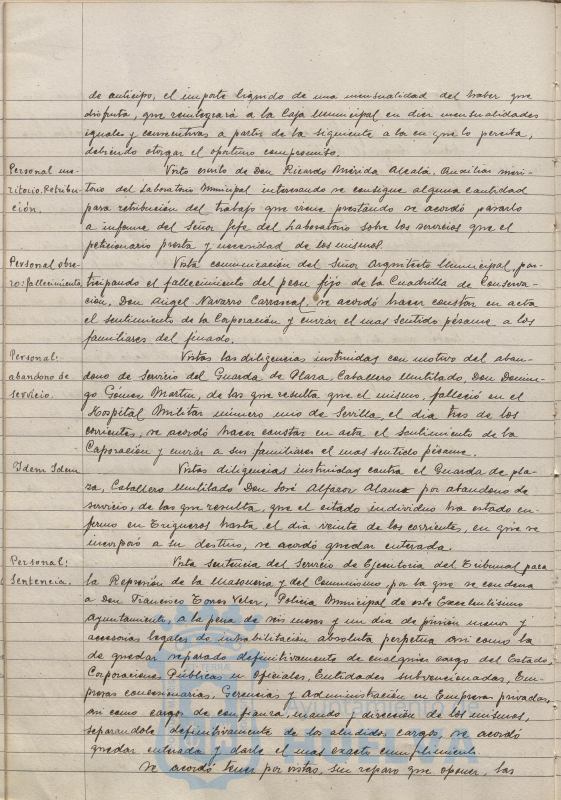 de anticipo, el importe líquido de una mensualidad del haber que
disfruta, que reintegrará a la Caja Municipal en diez mensualidades
iguales y consecutivas a partir de la siguiente a la en que lo perciba,
debiendo otorgar el oportuno compromiso.
Personal me-
ritorio. Retribu-
ción.
Visto escrito de Don Ricardo Mérida Alcalá, Auxiliar meri-
torio del Laboratorio Municipal interesando se consigne alguna cantidad
para retribución del trabajo que viene prestando se acordó pasarlo
a informe del Señor Jefe del Laboratorio sobre los servicios que el
peticionario presta y necesidad de los mismos.
Personal obre-
ro: fallecimiento
Vista comunicación del Señor Arquitecto Municipal, par-
ticipando el fallecimiento del peón fijo de la Cuadrilla de Conserva-
ción, Don Angel Navarro Carrascal, se acordó hacer constar en acta
el sentimiento de la Corporación y enviar el mas sentido pésame a los
familiares del finado.
Personal:
abandono de
servicio.
Vistas las diligencias instruidas con motivo del aban-
dono de servicio del Guarda de Plaza, Caballero Mutilado, Don Domin-
go Gómez Martín, de las que resulta que el mismo, falleció en el
Hospital Militar número uno de Sevilla el día tres de los
corrientes, se acordó hacer constar en acta el sentimiento de la
Corporación y enviar a sus familiares el mas sentido pésame.
Idem Idem
Vistas diligencias instruidas contra el Guarda de pla-
za, Caballero Mutilado Don José Alfaro Alamo por abandono de
servicio, de las que resulta, que el citado individuo ha estado en-
fermo en Trigueros hasta el día veinte de los corrientes, en que se
incorporó a su destino, se acordó quedar enterada.
Personal:
Sentencia.
Vista sentencia del Servicio de Ejecutoria del Tribunal para
la Represión de la Masonería y del Comunismo, por la que se condena
a Don Francisco Torres Velez, Policía Municipal de este Excelentísimo
Ayuntamiento, a la pena de seis meses y un día de prisión menor y
accesorias legales de inhabilitación absoluta perpetua asi como la
de quedar separado definitivamente de cualquier cargo del Estado,
Corporaciones Públicas u Oficiales, Entidades subvencionadas, Em-
presas concesionarias, Gerencias y Administración en Empresas privadas,
asi como cargos de confianza, mando y dirección de los mismos,
separandole definitivamente de los aludidos cargos, se acordó
quedar enterada y darle el mas exacto cumplimiento.
Se acordó tener por vistas, sin reparo que oponer, las
Ayuntamiento de
HUELVA